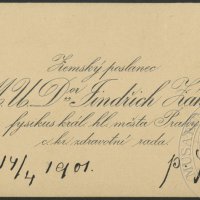 Zemský poslanec
M.U.Dr Jindřich
fysikus král. hl. města Prahy
c. kr. zdravotní rada.
14/4 1901.